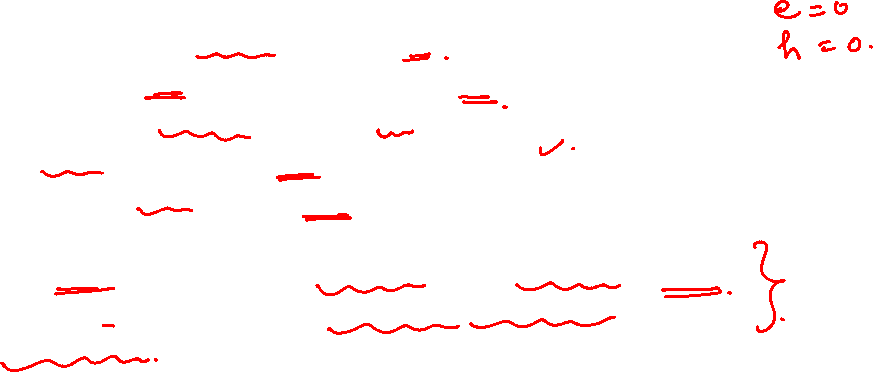 e = 0
h = 0.